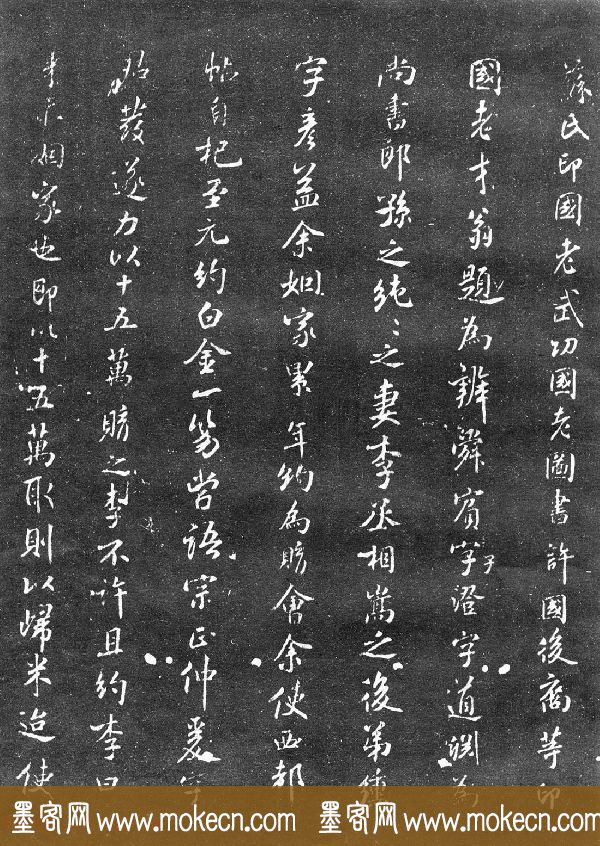 蘇氏印國老武功國老圖書許國後裔等印
國老才翁題為辨舜賓字子澄字道淵為
尚書郎孫之純之妻李丞相嵩之後弟
字彥益余姻家累年約為賂會余使西都
帖自杞至元約白金一笏嘗語宗正仲爰字
君發遂力以十五萬賂之李不許且約李曰
姻家也即以十五萬取則以歸米迨使
墨客网 www.mokecn.com 墨客网 www.mokecn.com